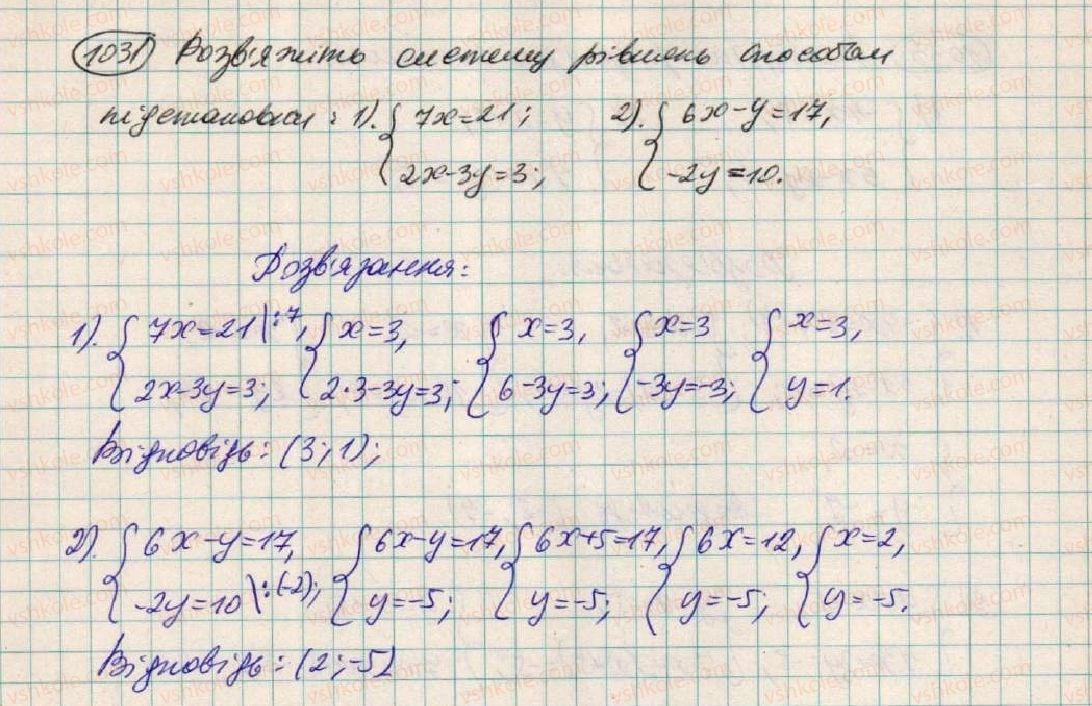 1031) Розв'яжіть систему рівнянь способом
підстановки: 1). { 7x=21; 2x-3y=3; 2). { 6x-y=17, -2y=10.
Розв'язання:
1). { 7x=21 |:7, 2x-3y=3; { x=3, 2·3-3y=3; { x=3, 6-3y=3; { x=3 -3y=-3; { x=3, y=1.
Відповідь: (3; 1);
2). { 6x-y=17, -2y=10 |:(-2); { 6x-y=17, y=-5; { 6x+5=17, y=-5; { 6x=12, y=-5; { x=2, y=-5.
Відповідь: (2; -5)
vshkole.com